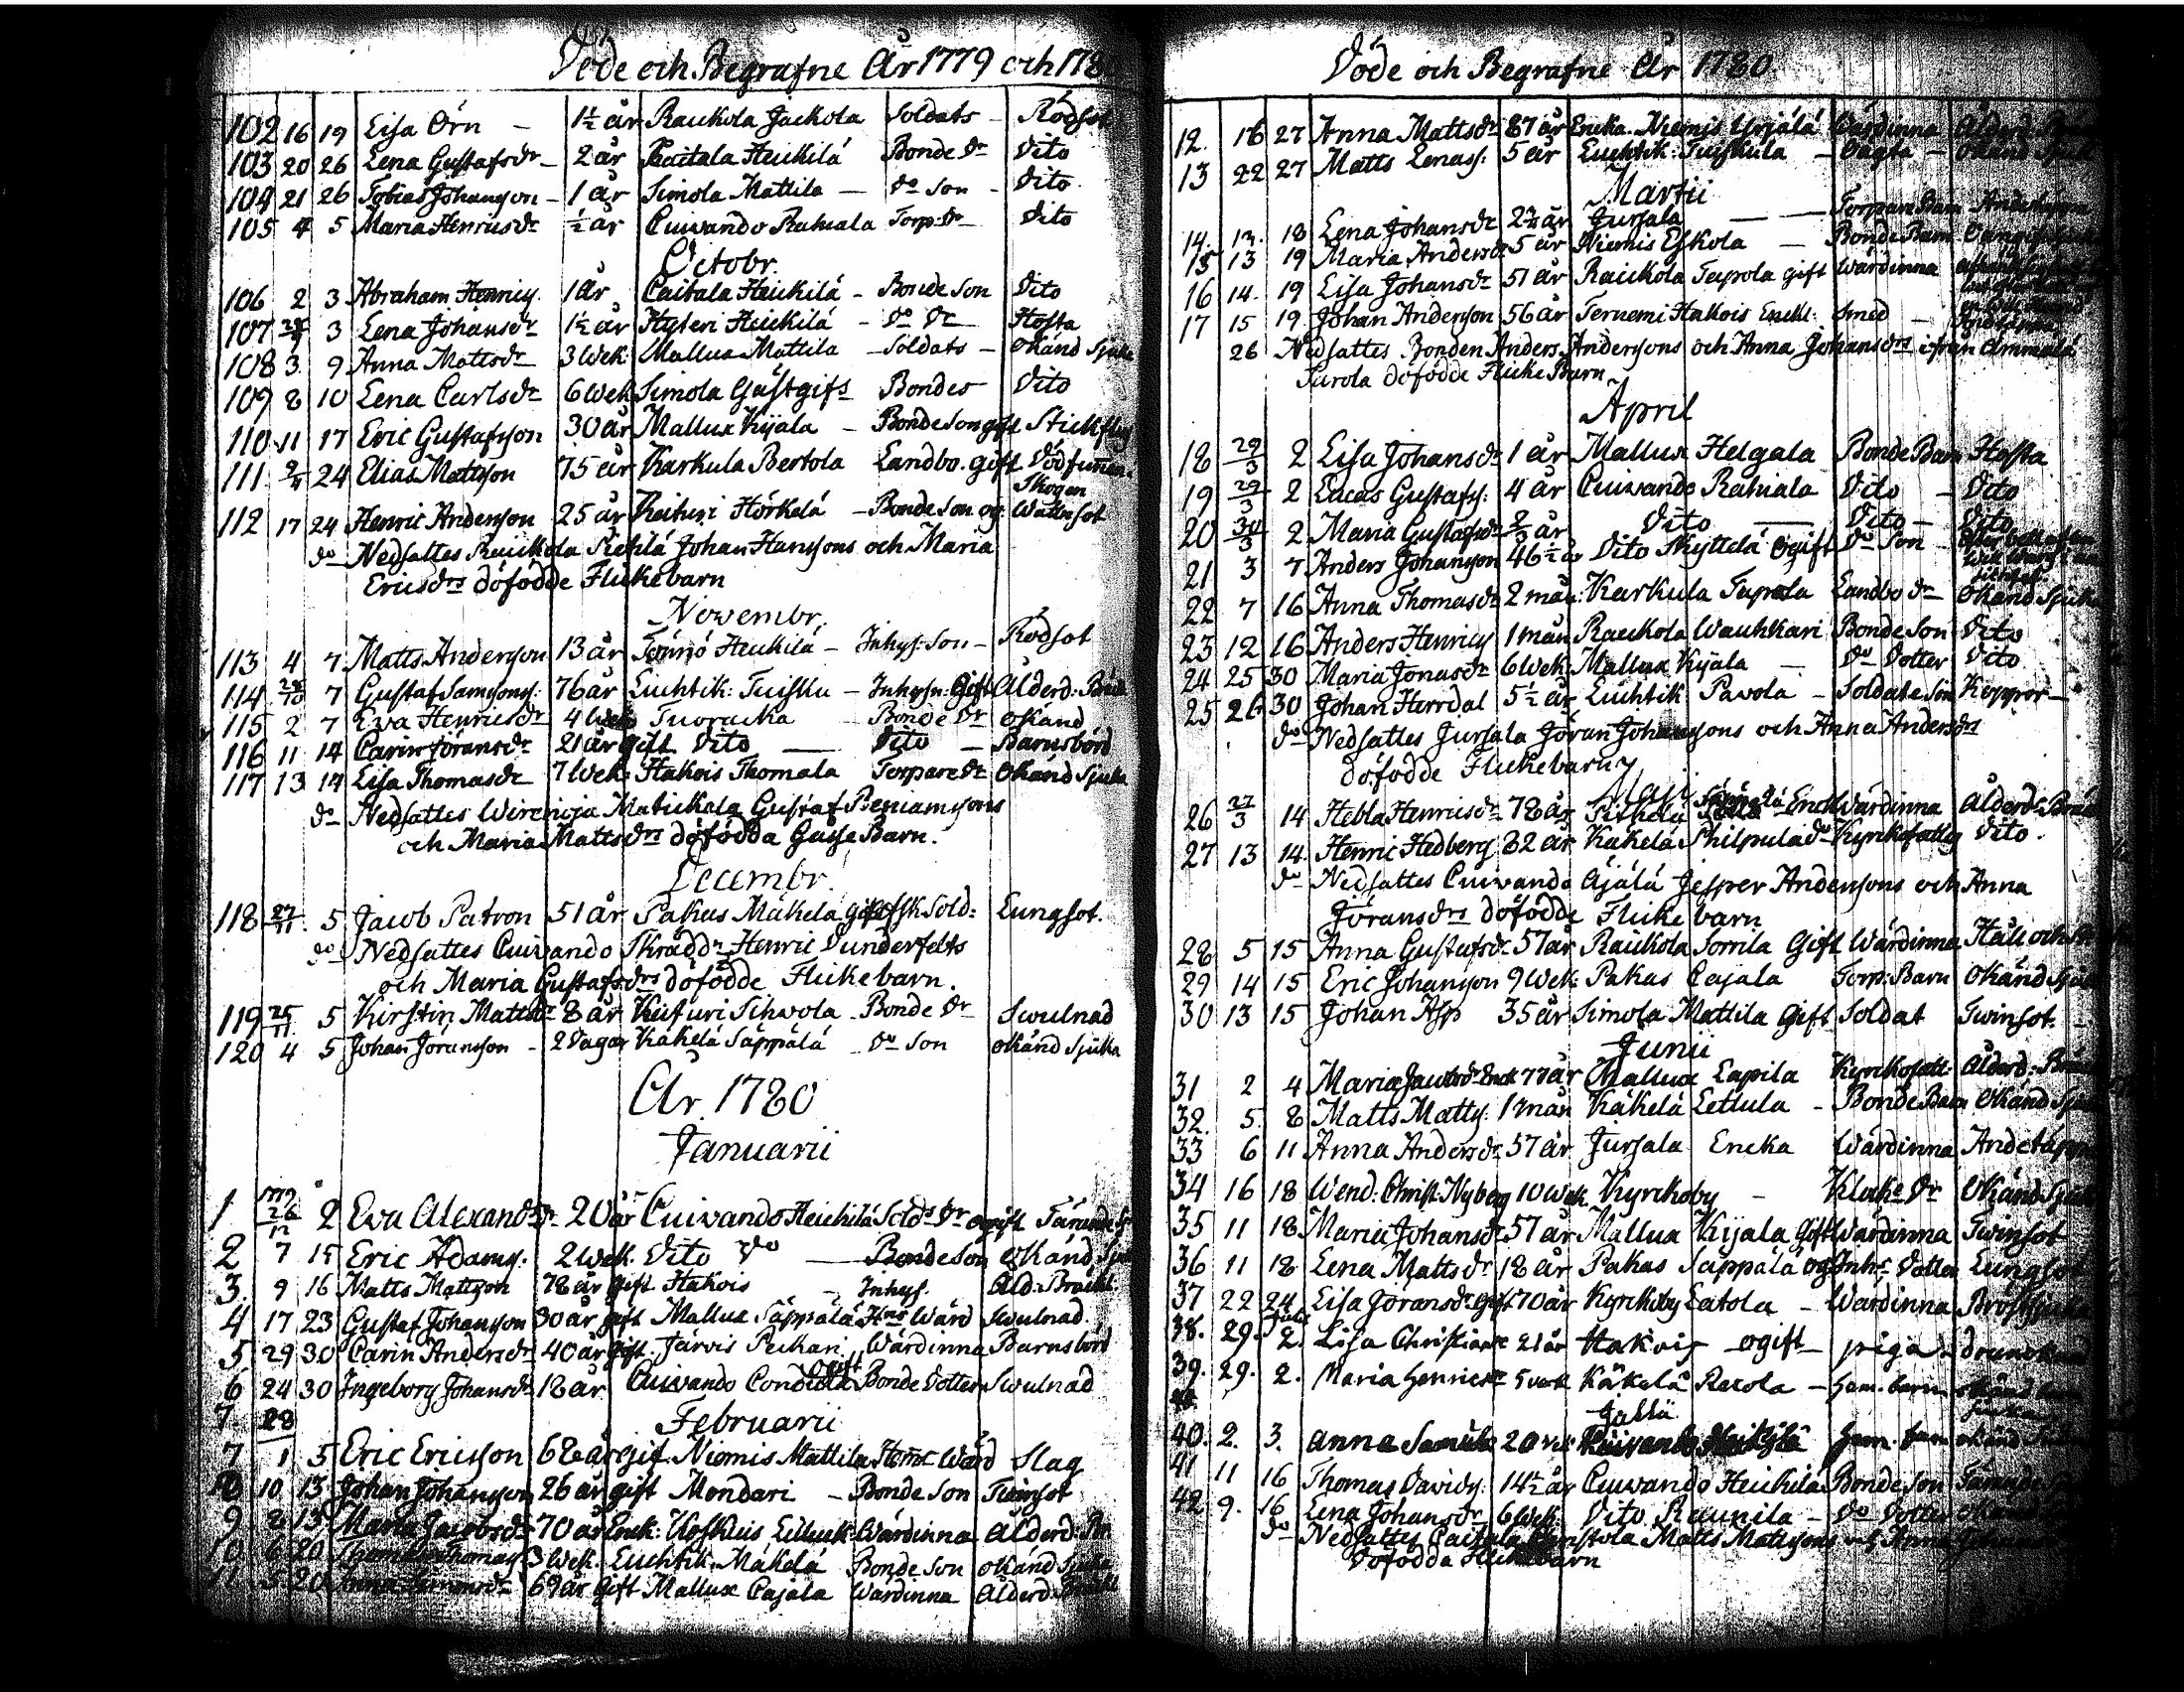 Döde och Begrafne År 1779 och 178
102 16 19 Lisa Örn - 1½ år Raukola Jackola Soldats - Rödsot
103 20 26 Lena Gustafsdr - 2 år Caitala Heickilä Bonde Dr Dito
104 21 26 Tobias Johansson - 1 år Simola Mattila - Do Son - Dito
105 4 5 Maria Henricsdr ½ år Cuivando Rahuala Torp. Dr - Dito
Octobr.
106 2 3 Abraham Henrics. 1 år Caitala Heickilä - Bonde Son Dito
107 3 Lena Johansdr 1½ år Hyteri Heickilä - Do Dr Hosta
108 3 9 Anna Mattsdr 3 Wek. Mallux Mattila - Soldats - Okänd Sjuka
109 8 10 Lena Carlsdr 6 Wek Simola Gästgifr Bondes Dito
110 11 17 Eric Gustafsson 30 år Mallux Kijala - Bonde Son gift Stickfleg
111 24 Elias Mattsson 75 år Karkula Bertola Landbo. gift Död funnen i
Skogen
112 17 24 Henric Andersson 25 år Keituri Hörkelä - Bonde Son og: Wattusot
do Nedsattes Raukola Pietilä Johan Hanssons och Maria
Ericsdrs döfödde Flickebarn
Novembr.
113 4 7 Matts Andersson 13 år Tönnö Heickilä - Inhys: Son - Rödsot
114 28/10 7 Gustaf Samsons. 76 år Liuhtik: Tuisku - Inhysn: Gift Ålderd: Bräck
115 2 7 Eva Henricsdr 4 Wek Tuoracka Bonde Dr okänd
116 11 14 Carin Jöransdr 21 år gift Dito - Dito - Barnsbörd
117 13 14 Lisa Thomasdr 7 Wek. Hakois Thomala Torpare Dr Okänd Sjuka
do Nedsattes Wirenoja Matickala Gustaf Beniamssons
och Maria Mattsdrs döfödda Gosse Barn.
Decembr.
118 27/11 5 Jacob Patron 51 år Pakas Mäkelä gift Sold: Lungsot.
do Nedsattes Cuivando Skräddr Henric Dunderfelts
och Maria Gustafsdrs döfödde Flickebarn.
119 25/11 5 Kirstin Mattsdr 8 år Keituri Sihvola Bonde Dr Swulnad
120 4 5 Johan Jöransson - 2 Dagar Käkelä Säppälä - Do Son okänd Sjuka
År 1780
Januarii
1 1779 26/12 2 Eva Alexandsdr 20 år Cuivando Heickilä Solds Dr ogift Tärande S
2 7 15 Eric Adams. 2 Wek. Dito Do - Bonde Son okänd Sjuka
3. 9 16 Matts Mattson 78 år gift Hakois - Inhys. Åld: Bräckl
4 17 23 Gustaf Johansson 30 år gift Mallux Säppälä Hems Wärd Swulnad.
5 29 30 Carin Andersdr 40 år gift. Järvis Peckari Wärdinna Barnsbörd
6 24 30 Ingeborg Johansdr 18 år Cuivando Condicka ogift Bonde Dotter Swulnad
7. 28
Februarii
7 1 5 Eric Ericsson 62 år gift. Niemis Mattila Hems Wärd Slag
8 10 13 Johan Johansson 26 år gift Mondari - Bonde Son Twinsot
9 8 13 Maria Jacobsdr 70 år Enck: Wärdinna Ålderd: Br
10 6 20 Thomas Thomass 3 Wek. Liuhtik. Mäkelä Bonde Son okänd Sjuka
11 5 20 Anna Simonsdr 69 år Gift Mallux Cajala Wärdinna Ålderd: Bräckl
Döde och Begrafne År 1780.
12. 16 27 Anna Mattsdr 87 år Encka Niemis Yrjälä Wärdinna Ålderd: Bräck
13 22 27 Matts Lenass. 5 år Liuhtik: Tuiskula - okänd Sjuk
Martii
14. 12. 18 Lena Johansdr 2½ år Jursala - Torpare Barn
15 13 19 Maria Andersdr 5 år Niemis Eskola - Bonde Barn
16 14. 19 Lisa Johansdr 51 år Raukola Tapola gift Wärdinna
17 15 19 Johan Andersson 56 år Ternemi Hakois Enckl: Smed - Andtäppa
26 Nedsattes Bonden Anders Anderssons och Anna Johansdrs ifrån Ammala
Parola döfödde Flicke Barn
April
18 29/3 2 Lisa Johansdr 1 år Mallux Helgala Bonde Barn Hosta
19 29/3 2 Lucas Gustafs. 4 år Cuivando Rahuala Dito - Dito
20 30/3 2 Maria Gustafsdr år Dito - Dito - Dito
21 3 7 Anders Johansson 46½ år Dito Skyttelä Ogift Do Son
22 7 16 Anna Thomasdr 2 mån: Karkula Tapola Landbo Dr okänd Sjuka
23 12 16 Anders Henrics 1 mån Raukola Wauhkari Bonde Son Dito
24 25 30 Maria Jonasdr 6 Wek: Mallux Kijala - Do Dotter Dito
25 26 30 Johan Herrdal 5½ år Liuhtik Pavola - Soldate Son Koppor -
do Nedsattes Jursala Jöran Johanssons och Anna Andersdrs
döfödde Flickebarn
Maji
26 27/3 14 Hebla Henricsdr 78 år Enck Wärdinna Ålderds Bräck
27 13 14 Henric Hedberg 82 år Käkelä Philpula do Kyrkofattig Dito.
do Nedsattes Cuivando Äjälä Jesper Anderssons och Anna
Jöransdrs döfödde Flicke barn
28 5 15 Anna Gustafsdr 57 år Raukola Sorrila Gift Wärdinna Håll och
29 14 15 Eric Johansson 9 Wek: Pakas Cajala Torp: Barn okänd Sjuk
30 13 15 Johan Asp 35 år Simola Mattila Gift Soldat Twinsot. -
Junii
31 2 4 Maria Jacobsdr Enck 77 år Mallux Lapila Kyrkofatt: Ålderd: Bräck
32. 5 8 Matts Matts: 1 mån Käkelä Lettula - Bonde Barn okänd Sjuk
33 6 11 Anna Andersdr 57 år Jursala Encka Wärdinna Andetäppa
34 16 18 Wend: Christ: Nyberg 10 Wek. Kyrckoby - Klocke Dr okänd Sjuk
35 11 18 Maria Johansdr 57 år Mallux Kijala Gift Wärdinna Twinsot
36 11 18 Lena Mattsdr 18 år Pakas Säppälä og. Inhs Dotter Lungsot
37 22 24 Lisa Jöransdr Gift 70 år Kyrckoby Latola - Wärdinna Bröstsjuka
38. 29. Julii 2. Lisa Christians 21 år Hakois ogift piga
39. 29. 2. Maria Henricsdr 5 vek Käkelä Recola - Hem. barn okänd
Julii
40. 2. 3. Anna 20 vek Kuivando Heikilä Hem. barn okänd
41 11 16 Thomas Davids: 14½ år Cuivando Heickilä Bonde Son Tärande
42 9. 16 Lena Johansdr 6 Wek: Dito Raunila - Do Dotter okänd
do Nedsattes Caitala Matts Mattssons och Anna
döfödda Flickebarn